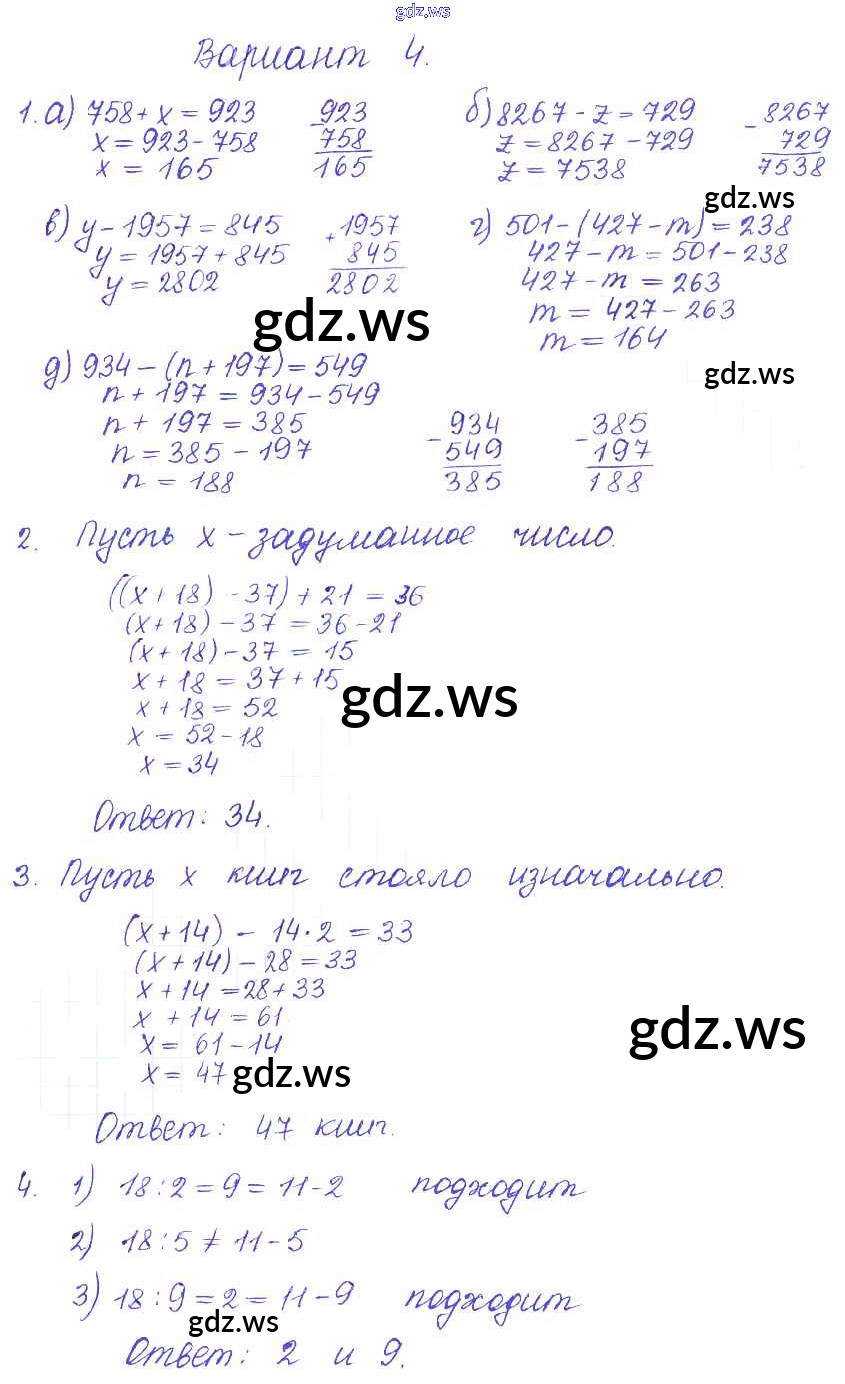 gdz.ws
Вариант 4.
1. а) 758 + x = 923
x = 923 - 758
x = 165
- 923
758
165
б) 8267 - z = 729
z = 8267 - 729
z = 7538
- 8267
729
7538
gdz.ws
в) y - 1957 = 845
y = 1957 + 845
y = 2802
+ 1957
845
2802
г) 501 - (427 - m) = 238
427 - m = 501 - 238
427 - m = 263
m = 427 - 263
m = 164
gdz.ws
gdz.ws
д) 934 - (n + 197) = 549
n + 197 = 934 - 549
n + 197 = 385
n = 385 - 197
n = 188
- 934
549
385
- 385
197
188
2. Пусть x - задуманное число.
((x + 18) - 37) + 21 = 36
(x + 18) - 37 = 36 - 21
(x + 18) - 37 = 15
x + 18 = 37 + 15
x + 18 = 52
x = 52 - 18
x = 34
gdz.ws
Ответ: 34.
3. Пусть x книг стояло изначально.
(x + 14) - 14 · 2 = 33
(x + 14) - 28 = 33
x + 14 = 28 + 33
x + 14 = 61
x = 61 - 14
x = 47
gdz.ws
gdz.ws
Ответ: 47 книг.
4. 1) 18 : 2 = 9 = 11 - 2 подходит
2) 18 : 5 ≠ 11 - 5
3) 18 : 9 = 2 = 11 - 9 подходит
gdz.ws
Ответ: 2 и 9.